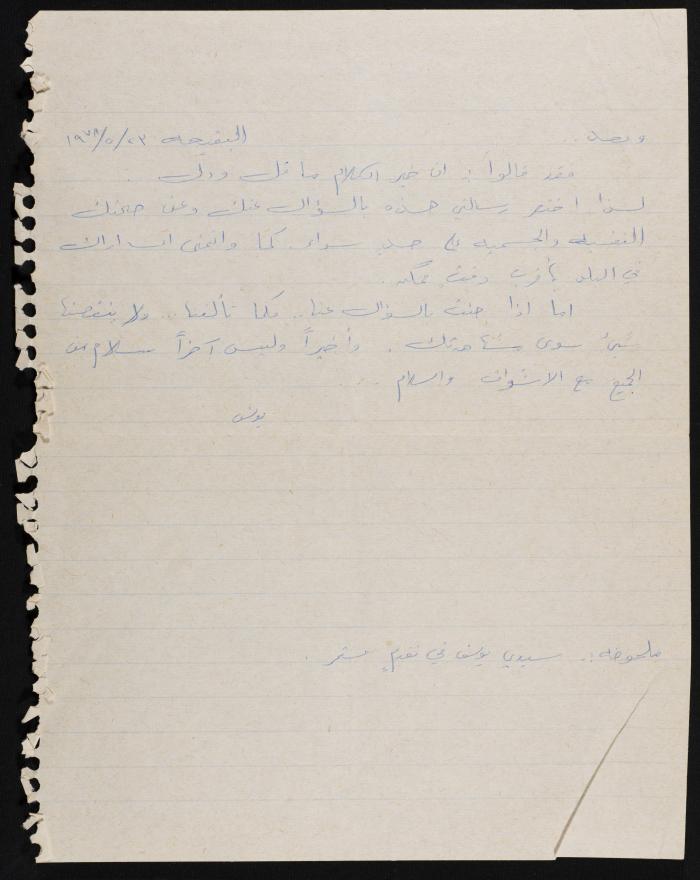 وبعد ... ٢٣/٥/١٩٧٨
فقد قالوا : ان خير الكلام ما قل ودل .
لذا اختصر رسالتي هذه بالسؤال عنك وعن صحتك
النفسية والجسمية على حد سواء. كما واتمنى ان اراك
في البلد بأقرب وقت ممكن .
اما اذا جئت بالسؤال عنا .. فكما تألفنا .. ولا ينقصنا
شيء سوى مشاهدتك . وأخيراً وليس آخراً سلام من
الجميع مع الاشواق والسلام ...
يونس
ملحوظه :. سيدي يونس في تقدمٍ مستمر .